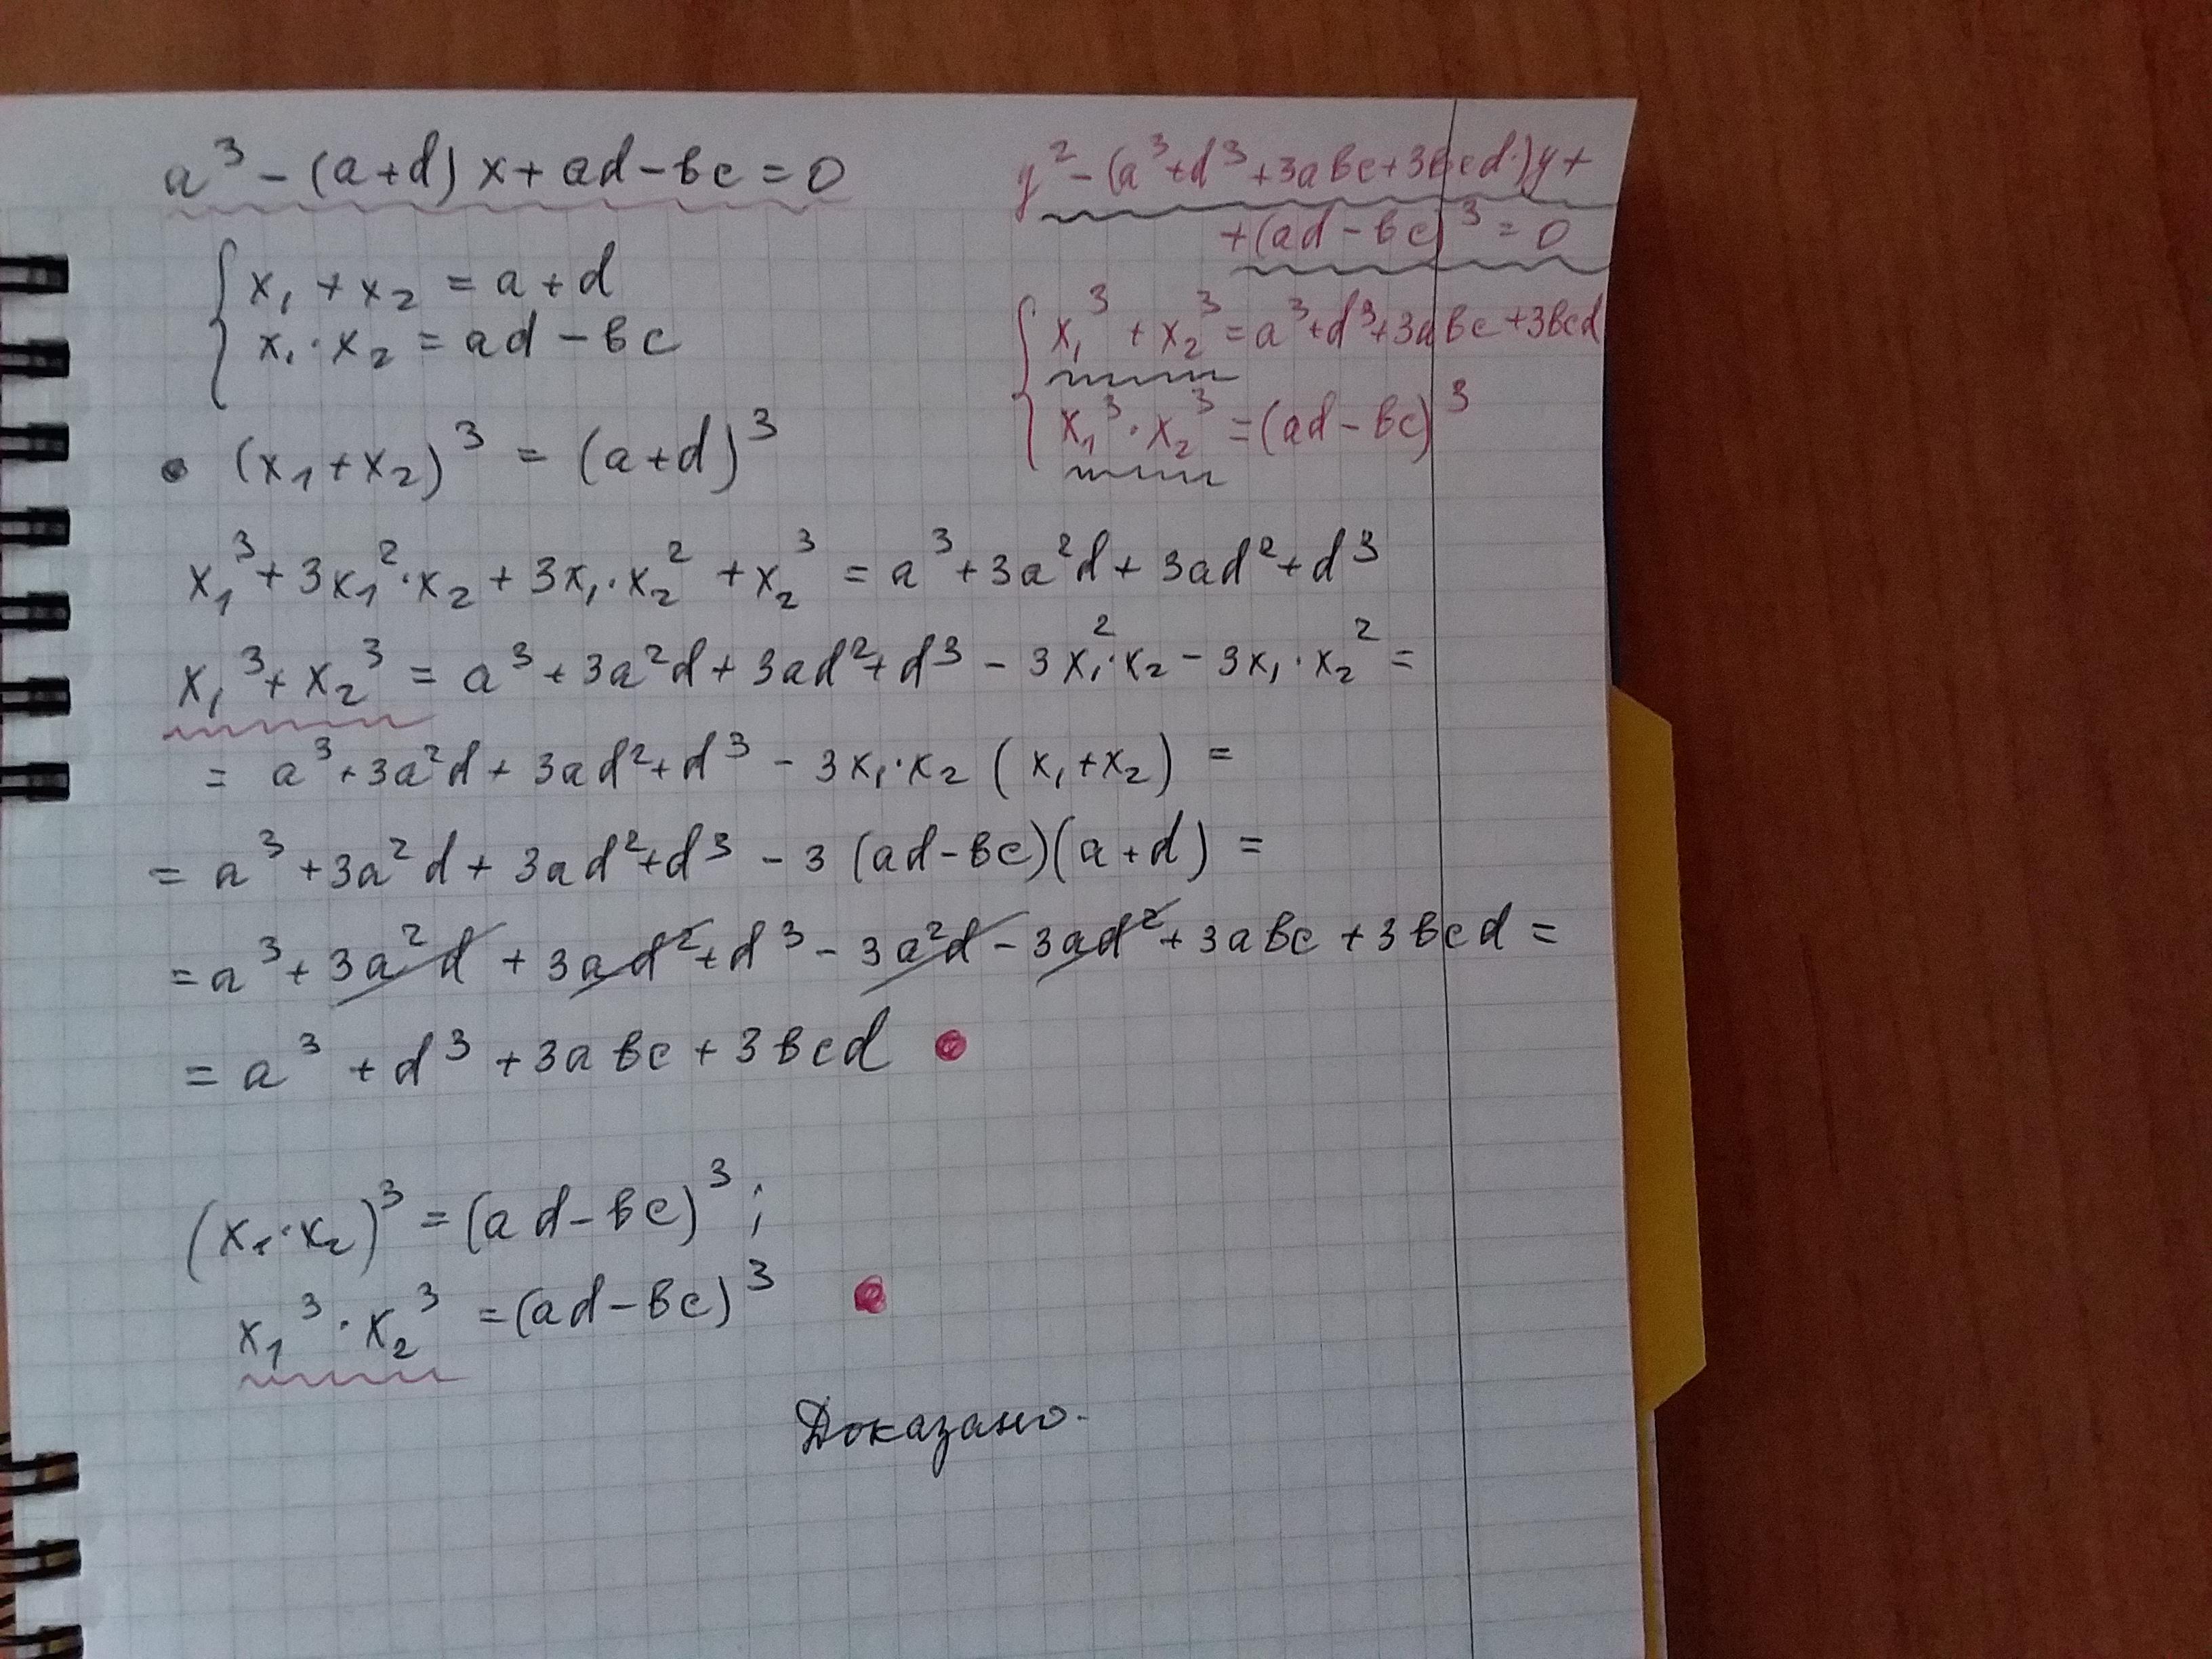 a³ - (a+d) x + ad - bc = 0
y² - (a³ + d³ + 3abc + 3bcd) y +
+ (ad - bc)³ = 0
x₁ + x₂ = a + d
x₁ · x₂ = ad - bc
x₁³ + x₂³ = a³ + d³ + 3abc + 3bcd
x₁³ · x₂³ = (ad - bc)³
• (x₁ + x₂)³ = (a+d)³
x₁³ + 3x₁² · x₂ + 3x₁ · x₂² + x₂³ = a³ + 3a²d + 3ad² + d³
x₁³ + x₂³ = a³ + 3a²d + 3ad² + d³ - 3x₁² · x₂ - 3x₁ · x₂² =
= a³ + 3a²d + 3ad² + d³ - 3x₁ · x₂ (x₁ + x₂) =
= a³ + 3a²d + 3ad² + d³ - 3 (ad - bc)(a + d) =
= a³ + 3a²d + 3ad² + d³ - 3a²d - 3ad² + 3abc + 3bcd =
= a³ + d³ + 3abc + 3bcd
(x₁ · x₂)³ = (ad - bc)³ ;
x₁³ · x₂³ = (ad - bc)³
Доказано.